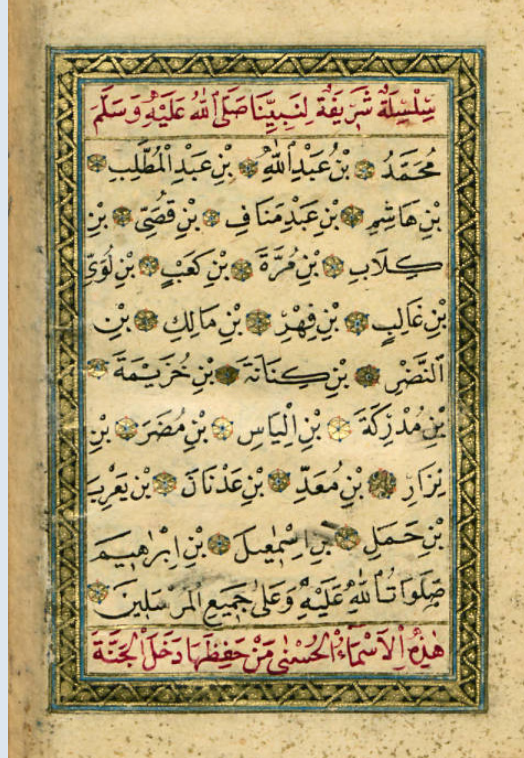 سِلْسِلَةٌ شَرِيفَةٌ لِنَبِيِّنَا صَلَّى اللهُ عَلَيْهِ وَسَلَّمَ
مُحَمَّدُ بْنُ عَبْدِ اللهِ بْنِ عَبْدِ الْمُطَّلِبِ
بْنِ هَاشِمِ بْنِ عَبْدِ مَنَافِ بْنِ قُصَيِّ بْنِ
كِلَابِ بْنِ مُرَّةَ بْنِ كَعْبِ بْنِ لُؤَيِّ
بْنِ غَالِبِ بْنِ فِهْرِ بْنِ مَالِكِ بْنِ
النَّضْرِ بْنِ كِنَانَةَ بْنِ خُزَيْمَةَ
بْنِ مُدْرِكَةَ بْنِ الْيَاسِ بْنِ مُضَرَ بْنِ
نِزَارِ بْنِ مُعَدِّ بْنِ عَدْنَانَ بْنِ يَعْرِبَ
بْنِ حَمَلِ بْنِ اِسْمٰعِيلَ بْنِ اِبْرٰهِيمَ
صَلَوَاتُ اللهِ عَلَيْهِ وَعَلٰى جَمِيعِ الْمُرْسَلِينَ
هٰذِهِ الْاَسْمَاءُ الْحُسْنٰى مَنْ حَفِظَهَا دَخَلَ الْجَنَّةَ